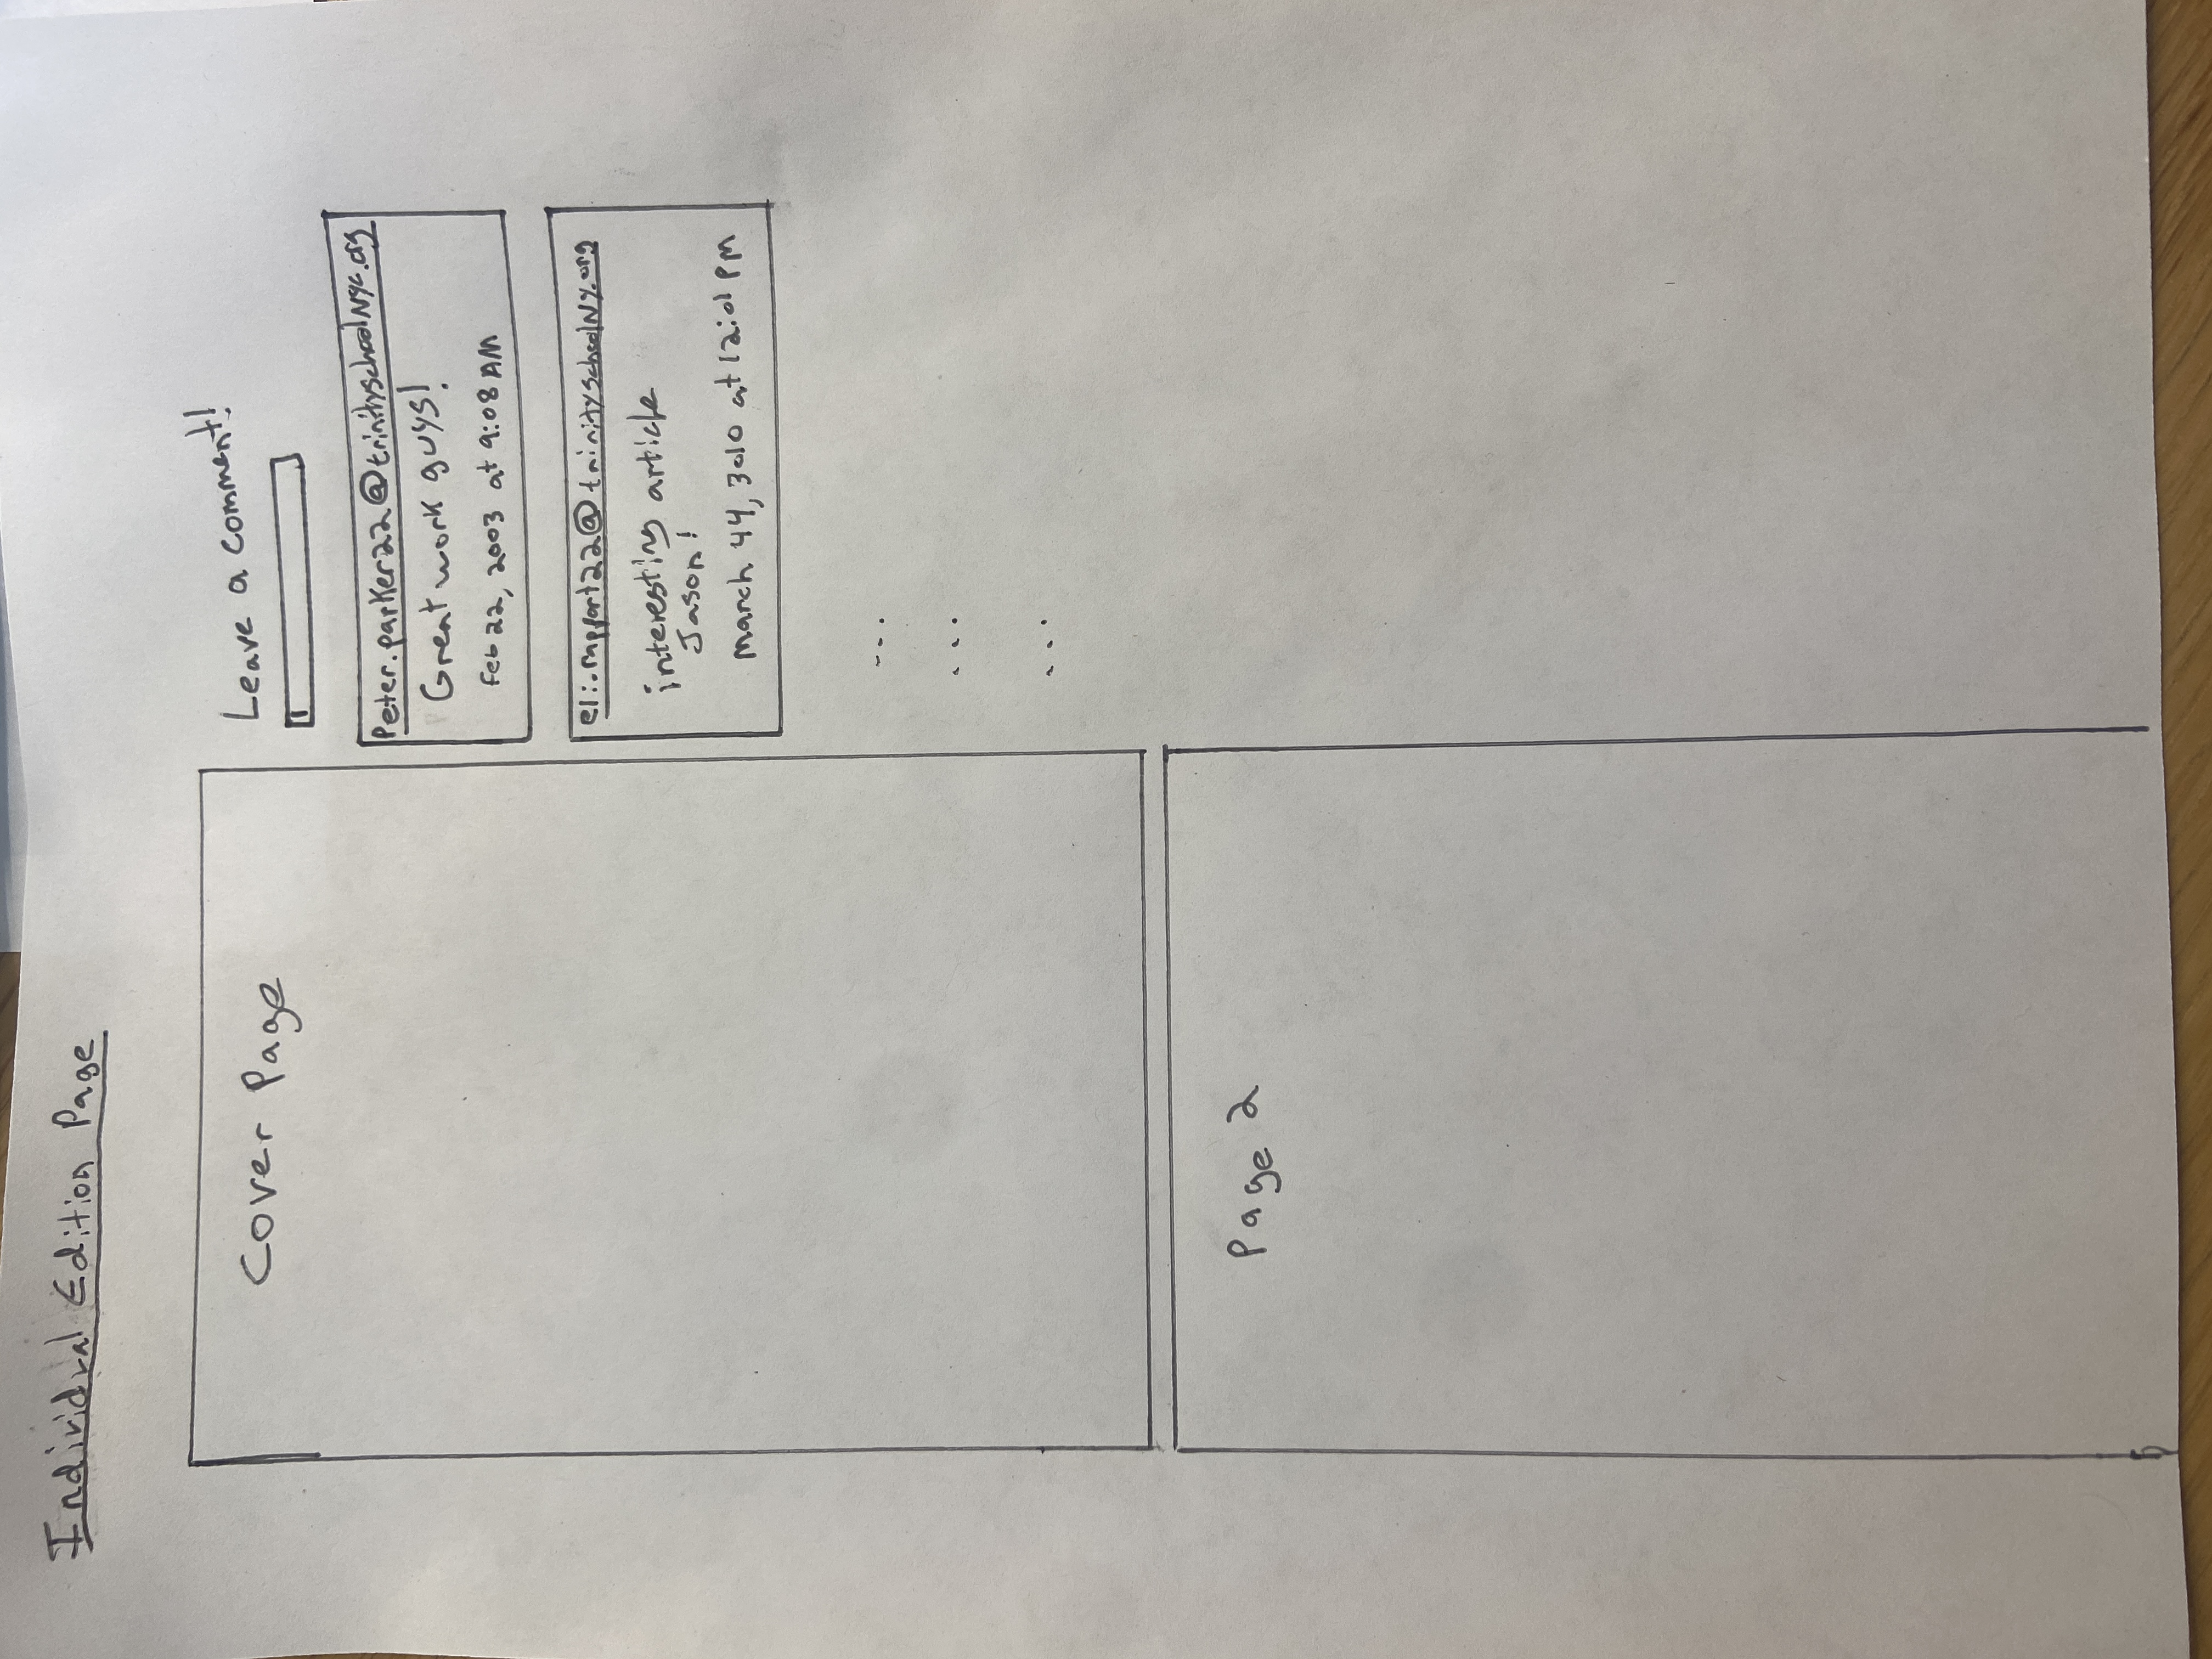 Individual Edition Page
Cover Page
Leave a comment!
Peter.parker22@trinityschoolNYC.org
Great work guys!
Feb 22, 2003 at 9:08 AM
eli.rapport22@trinityschoolNY.org
interesting article
Jason!
March 44, 3010 at 12:01 PM
...
...
...
Page 2